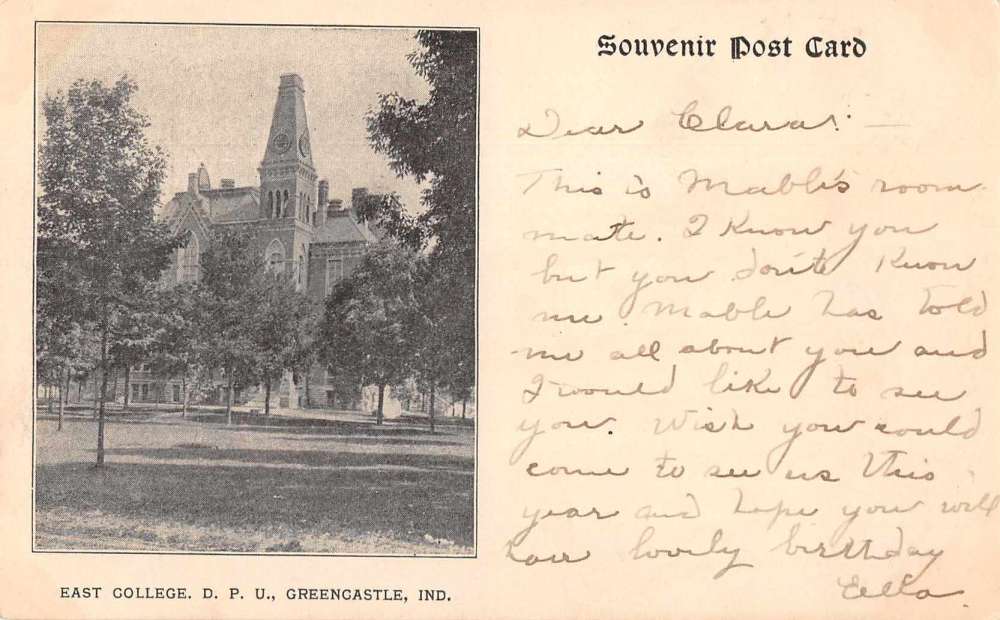 Souvenir Post Card
Dear Clara: —
This is Mable's room
mate. I know you
but you don't know
me. Mable has told
me all about you and
I would like to see
you. Wish you could
come to see us this
year and hope you will
have lovely birthday
Ella
EAST COLLEGE. D. P. U., GREENCASTLE, IND.